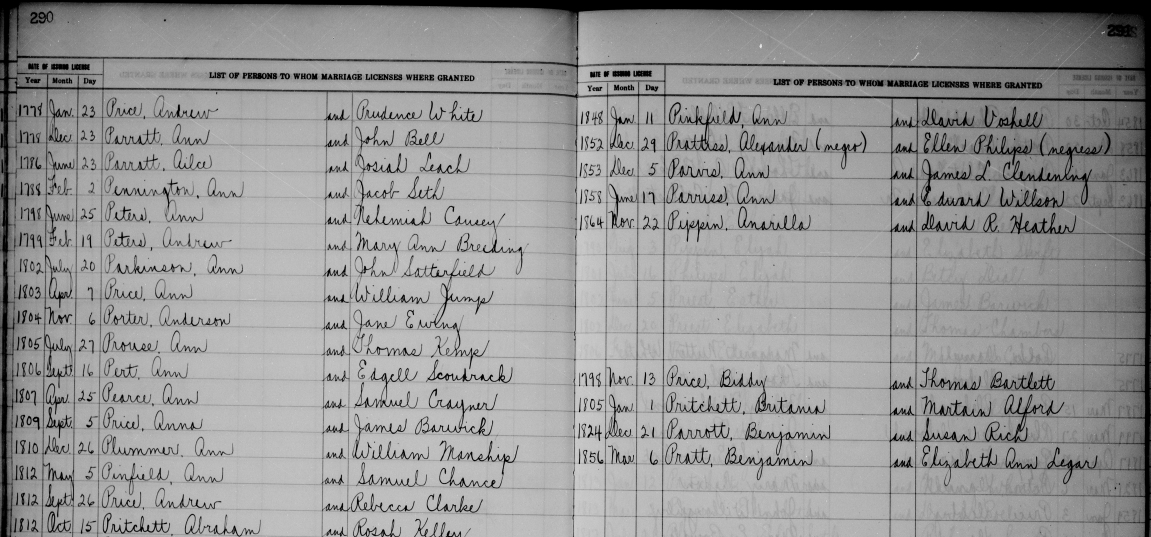 290
DATE OF ISSUING LICENSE
Year Month Day LIST OF PERSONS TO WHOM MARRIAGE LICENSES WHERE GRANTED
1778 Jan. 23 Price, Andrew and Prudence White
1778 Dec 23 Parratt, Ann and John Bell
1786 June 23 Parratt, Ailce and Josiah Leach
1788 Feb 2 Pennington, Ann and Jacob Seth
1798 June 25 Peters, Ann and Nehemiah Causey
1799 Feb 19 Peters, Andrew and Mary Ann Breeding
1802 July 20 Parkinson, Ann and John Satterfield
1803 Apr. 7 Price, Ann and William Jump
1804 Nov. 6 Porter, Anderson and Jane Ewing
1805 July 27 Prouse, Ann and Thomas Kemp
1806 Sept 16 Pert, Ann and Edgell Scoudrack
1807 Apr. 25 Pearce, Ann and Samuel Crayner
1809 Sept. 5 Price, Anna and James Barwick
1810 Dec 26 Plummer, Ann and William Manship
1812 May 5 Pinfield, Ann and Samuel Chance
1812 Sept. 26 Price, Andrew and Rebecca Clarke
1812 Oct. 15 Pritchett, Abraham and Rosah Kelley
DATE OF ISSUING LICENSE
Year Month Day LIST OF PERSONS TO WHOM MARRIAGE LICENSES WHERE GRANTED
1848 Jan. 11 Pinkfield, Ann and David Voshell
1852 Dec 29 Prattiss, Alexander (negro) and Ellen Philips (negress)
1853 Dec 5 Parvis, Ann and James L. Clendening
1858 June 17 Parriss, Ann and Edward Willson
1864 Nov. 22 Pippin, Anarilla and David R. Heather
1798 Nov. 13 Price, Biddy and Thomas Bartlett
1805 Jan. 1 Pritchett, Britania and Martain Alford
1824 Dec 21 Parrott, Benjamin and Susan Rich
1856 Mar 6 Pratt, Benjamin and Elizabeth Ann Legar